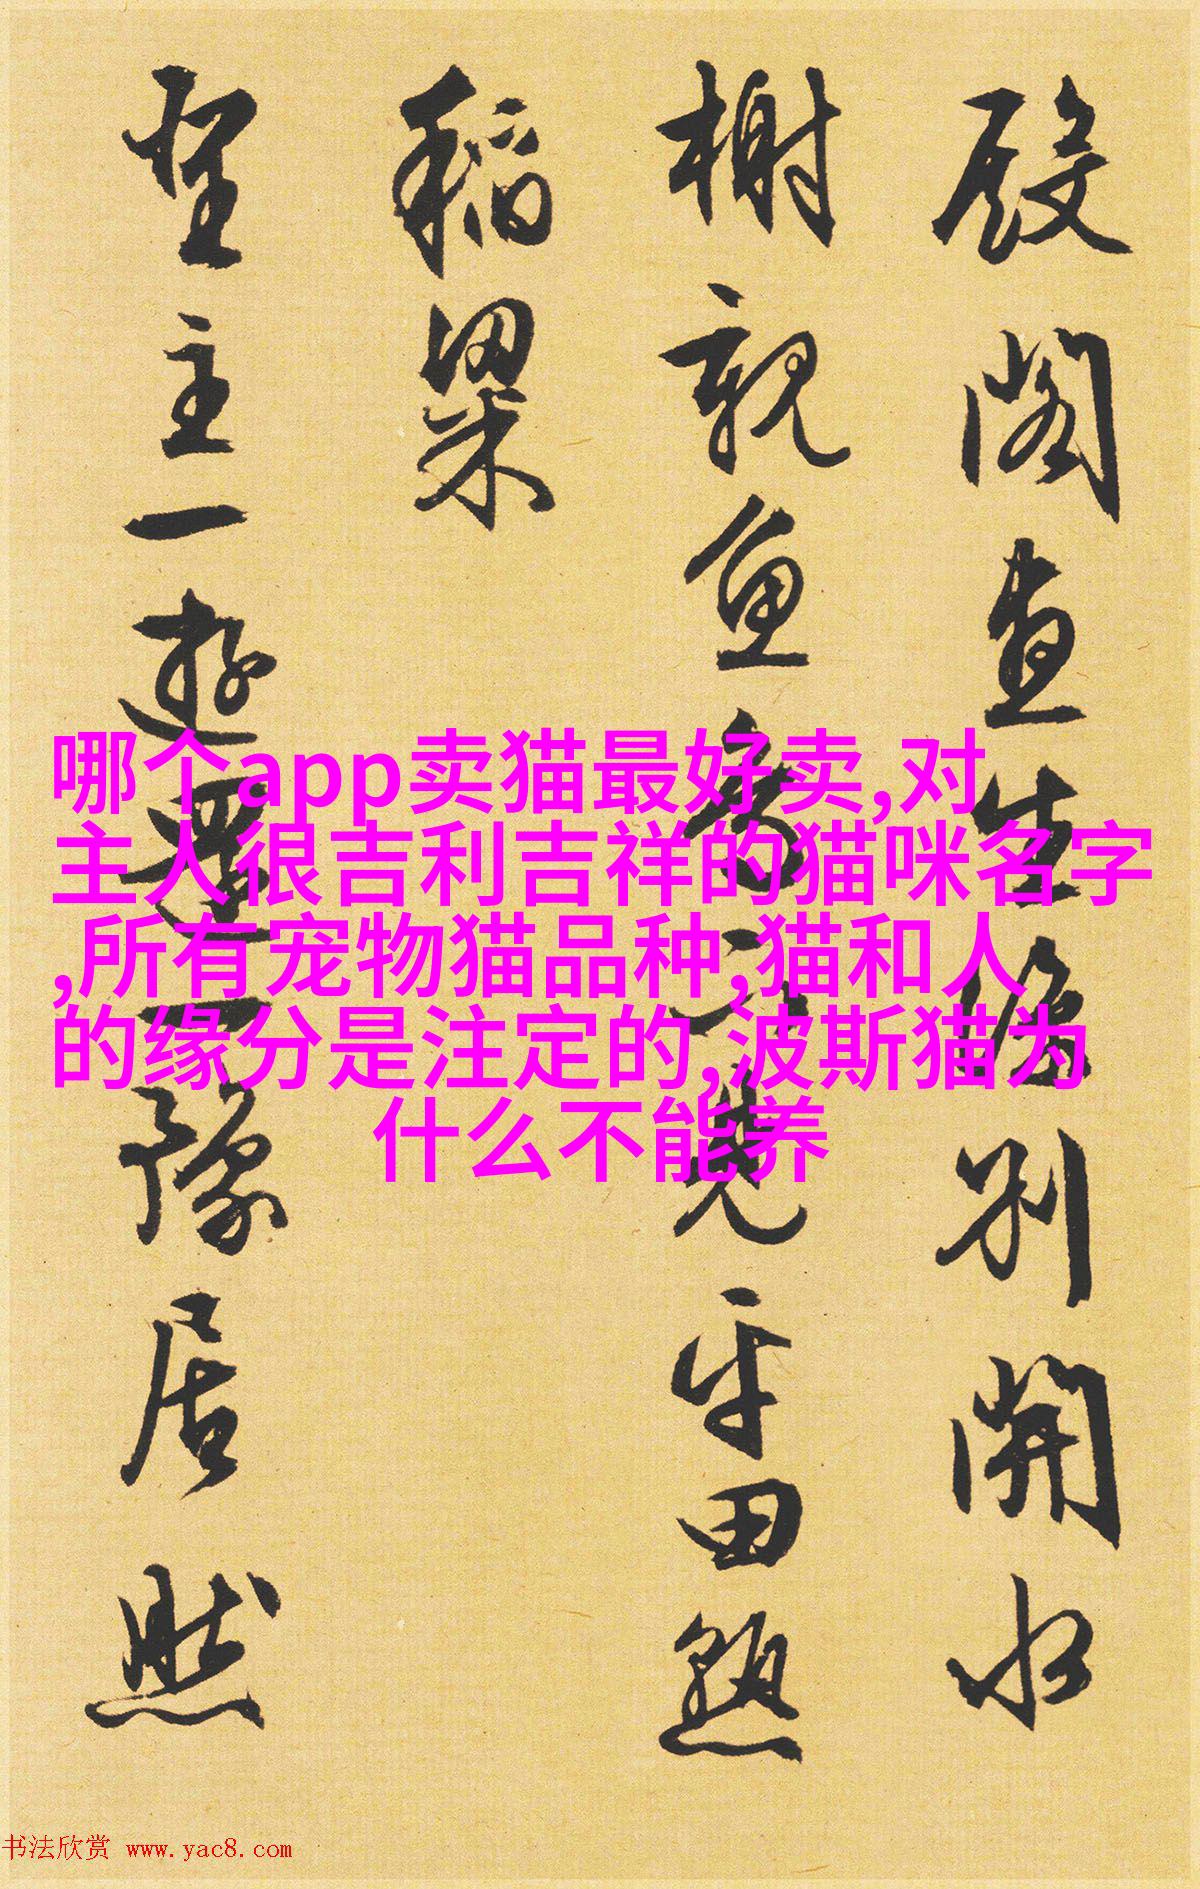 殿閣直生別開水
榭親魚覽平田熟
稻粱
聖主一遊還一豫居然
哪个app卖猫最好卖,对
主人很吉利吉祥的猫咪名字
,所有宠物猫品种,猫和人
的缘分是注定的,波斯猫为
什么不能养
书法欣赏 www.yac8.com